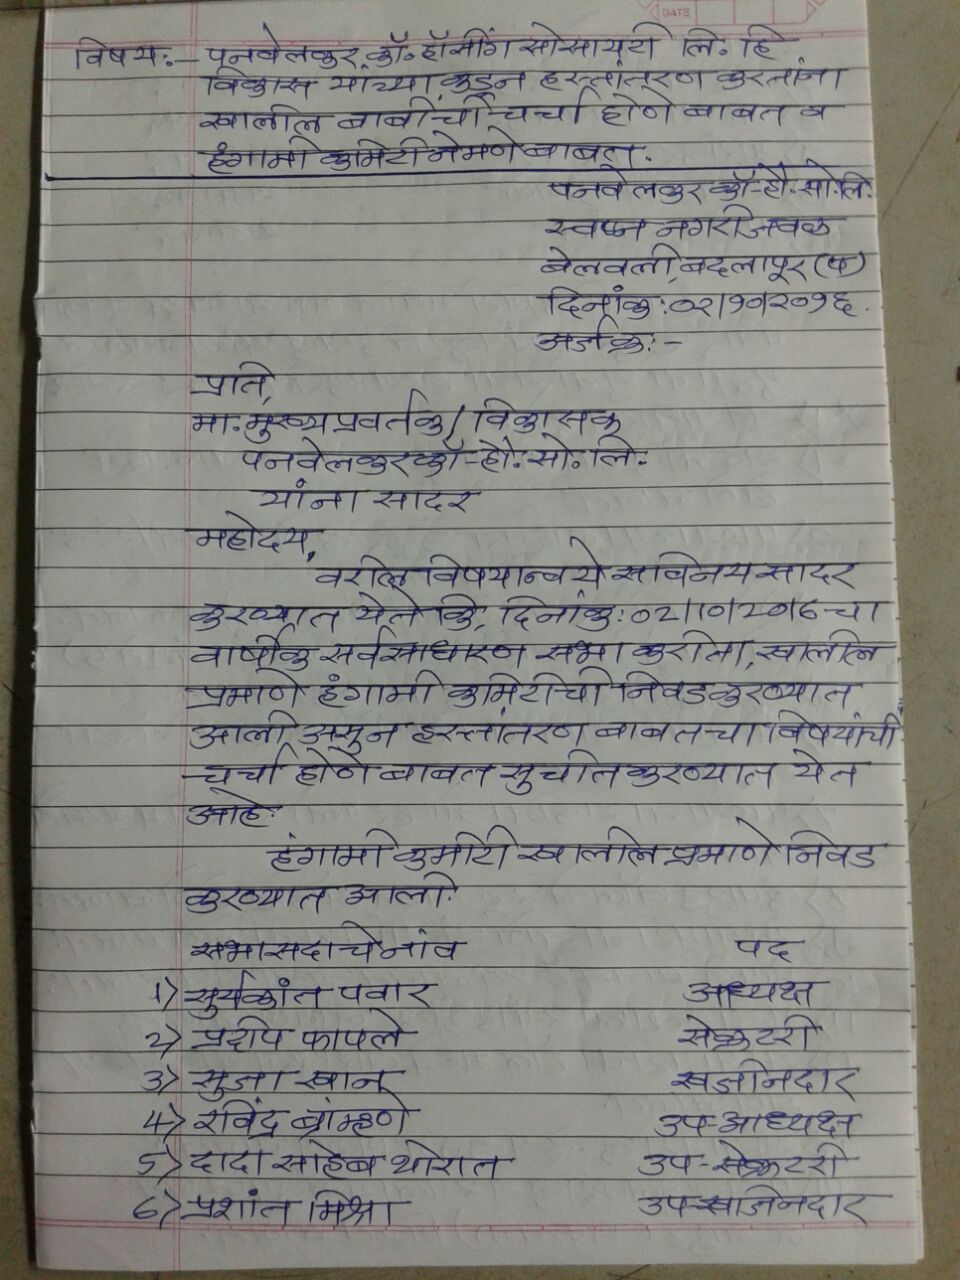 DATE
विषय:- पनवेलकर कॉ. हॉसींग सोसायटी लि. हि
विकास यांच्या कडून हस्तांतरण करतांना
खालील बाबींची चर्चा होणे बाबत व
हंगामी कमिटी नेमणे बाबत.
पनवेलकर कॉ-हौ.सो.लि.
स्वप्न नगरी जवळ
बेलवली, बदलापूर (प)
दिनांक: ०२/१०/२०१६.
अर्ज क्र:-
प्रति,
मा. मुख्य प्रवर्तक/विकासक
पनवेलकर कॉ-हौ.सो.लि.
यांना सादर
महोदय,
वरील विषयान्वये सविनय सादर
करण्यात येते कि, दिनांक: ०२/१०/२०१६ चा
वार्षीक सर्वसाधारण सभा करीता, खालील
प्रमाणे हंगामी कमिटीची निवड करण्यात
आली असुन हस्तांतरण बाबतचा विषयांची
चर्चा होणे बाबत सुचीत करण्यात येत
आहे.
हंगामी कमीटी खालील प्रमाणे निवड
करण्यात आली.
सभासदाचे नांव पद
1) सुर्यकांत पवार अध्यक्ष
2) प्रदीप फापले सेक्रटरी
3) सुजा खान खजीनदार
4) रविंद्र ब्रांम्हणे उप-आध्यक्ष
5) दादासाहेब थोरात उप-सेक्रटरी
6) प्रशांत मिश्रा उप-खाजिनदार